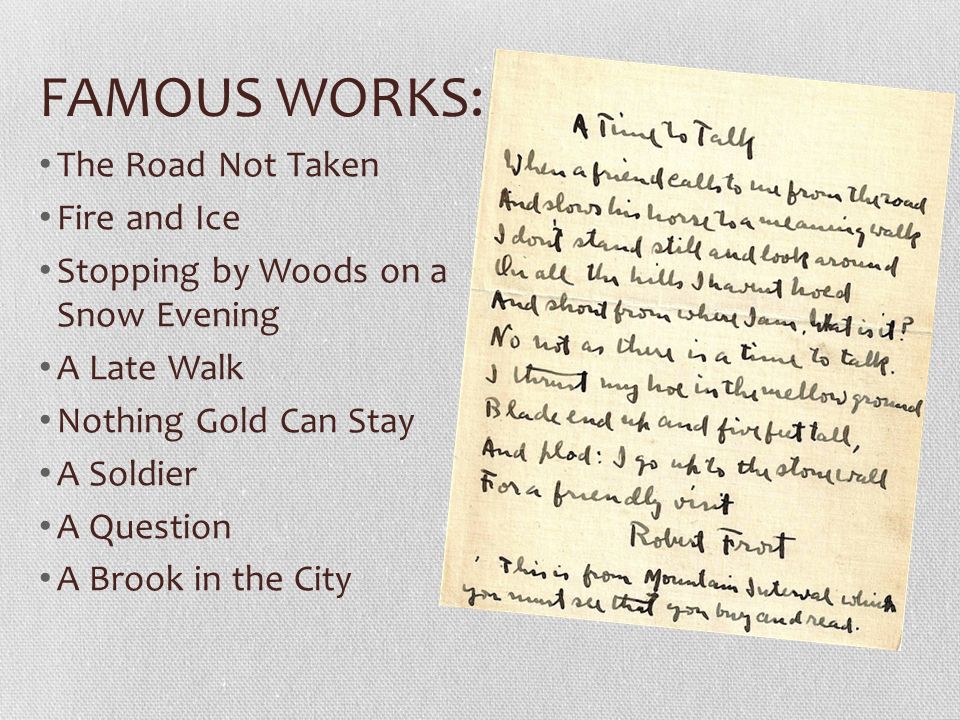 FAMOUS WORKS:
• The Road Not Taken
• Fire and Ice
• Stopping by Woods on a
Snow Evening
• A Late Walk
• Nothing Gold Can Stay
• A Soldier
• A Question
• A Brook in the City
A Time to Talk
When a friend calls to me from the road
And slows his horse to a meaning walk
I don't stand still and look around
On all the hills I havent hoed
And shout from where I am, What is it?
No not as there is a time to talk.
I thrust my hoe in the mellow ground
Blade end up and five feet tall,
And plod: I go up to the stone wall
For a friendly visit
Robert Frost
This is from Mountain Interval which
you must see that you buy and read.